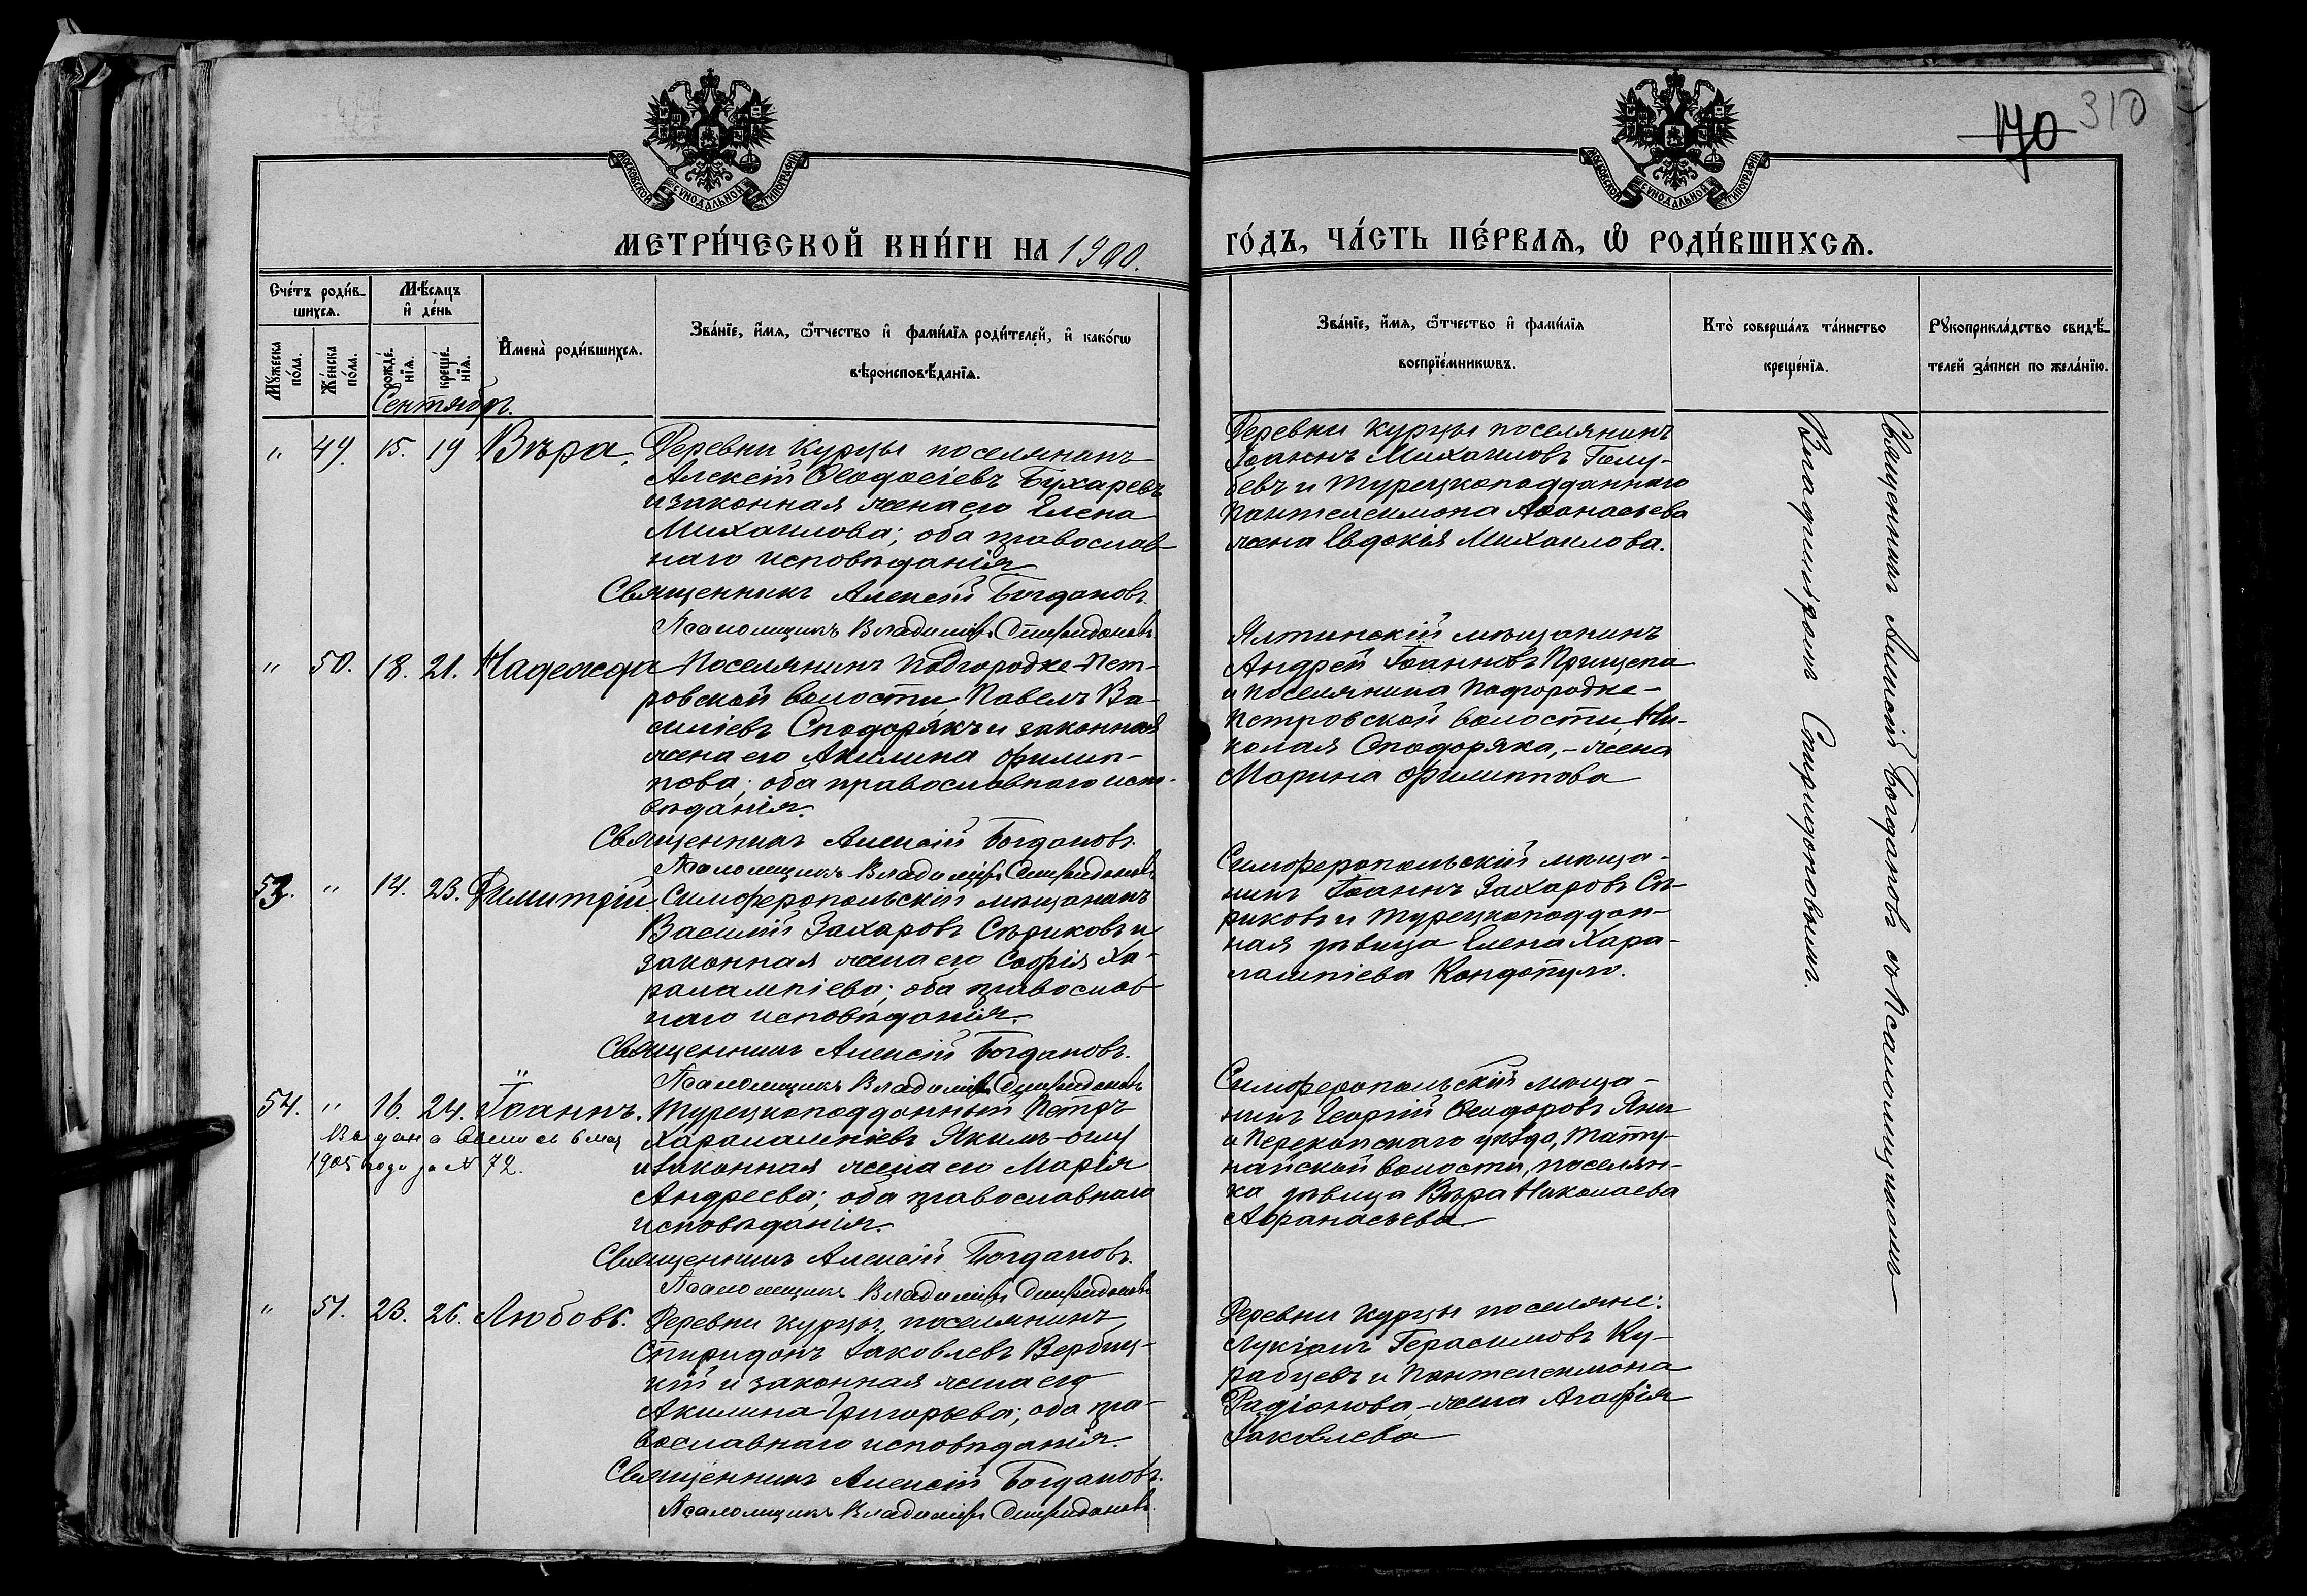 170 310
МОСКОВСКОЙ СѴНОДАЛЬНОЙ ТИПОГРАФІИ
МОСКОВСКОЙ СѴНОДАЛЬНОЙ ТИПОГРАФІИ
МЕТРИ́ЧЕСКОЙ КНИ́ГИ НА 1900.
ГО́ДЪ, ЧА́СТЬ ПЕ́РВАѦ, Ѡ҆ РОДИ́ВШИХСѦ.
Сче́тъ роди́в-
шихсѧ.
Мѣ́сѧцъ
и҆ де́нь
Мꙋ́жеска
по́ла.
Же́нска
по́ла.
рожде́-
нїѧ.
креще́-
нїѧ.
И҆мена̀ роди́вшихсѧ.
Зва́нїе, и҆́мѧ, ѻ҆́тчество и҆ фами́лїѧ роди́телей, и҆ како́гѡ
вѣроисповѣ́данїѧ.
Зва́нїе, и҆́мѧ, ѻ҆́тчество и҆ фами́лїѧ
воспрїе́мникѡвъ.
Кто̀ соверша́лъ та́инство
креще́нїѧ.
Рꙋкоприкла́дство свидѣ́-
телей за́писи по жела́нїю.
Сентябрь.
" 49. 15. 19 Вѣра.
Деревни Курцы поселянинъ
Алексій Ѳеодосіевъ Бухаревъ
и законная жена его Елена
Михаилова; оба православ-
наго исповѣданія.
Священникъ Алексій Богдановъ.
Псаломщикъ Владиміръ Спиридоновъ
Деревни Курцы поселянинъ
Іоаннъ Михаиловъ Голу-
бевъ и Турецкоподданнаго
Пантелеимона Аѳанасьева
жена Евдокія Михаилова.
" 50. 18. 21. Надежда
Поселянинъ Подгородне-Пет-
ровской волости Павелъ Ва-
силіевъ Сподорякъ и законная
жена его Акилина Филип-
пова; оба православнаго испо-
вѣданія.
Священникъ Алексій Богдановъ.
Псаломщикъ Владиміръ Спиридоновъ
Ялтинскій мѣщанинъ
Андрей Іоанновъ Прищепа
и поселянина Подгородне-
Петровской волости, Ни-
колая Сподоряка, - жена
Марина Филиппова
53. " 14. 23. Димитрій.
Симферопольскій мѣщанинъ
Василій Захаровъ Сѣриковъ и
законная жена его Софія Ха-
ралампіева; оба православ-
наго исповѣданія.
Священникъ Алексій Богдановъ.
Псаломщикъ Владиміръ Спиридоновъ
Симферопольскій мѣща-
нинъ Іоаннъ Захаровъ Сѣ-
риковъ и Турецкоподдан-
ная дѣвица Елена Хара-
лампіева Кондопуло.
54. " 16. 24. Іоаннъ.
Выдана выпись 6 мая
1905 года за № 72.
Турецкоподданный Петръ
Харалампіевъ Якимъ-оглу
и законная жена его Марія
Андреева; оба православнаго
исповѣданія.
Священникъ Алексій Богдановъ.
Псаломщикъ Владиміръ Спиридоновъ
Симферопольскій мѣща-
нинъ Георгій Ѳеодоровъ
и Перекопскаго уѣзда,
найской волости, поселян-
ка дѣвица Вѣра Николаева
Афанасьева
" 51. 23. 26. Любовь.
Деревни Курцы, поселянинъ
Спиридонъ Іаковлевъ Вербиц-
кій и законная жена его
Акилина Григорьева; оба пра-
вославнаго исповѣданія.
Священникъ Алексій Богдановъ.
Псаломщикъ Владиміръ Спиридоновъ.
Деревни Курцы поселяне:
Лукіанъ Герасимовъ Ку-
рабцевъ и Пантелеимона
Радіонова, - жена Агафія
Іаковлева
Священникъ Алексій Богдановъ съ Псаломщикомъ
Владиміромъ Спиридоновымъ.